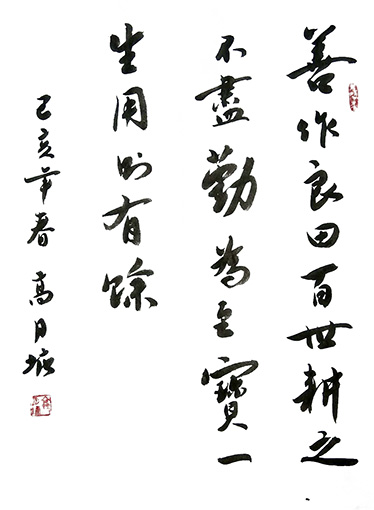 善作良田百世耕之
不盡勤為至寶一
生用則有餘
己亥年春 高月